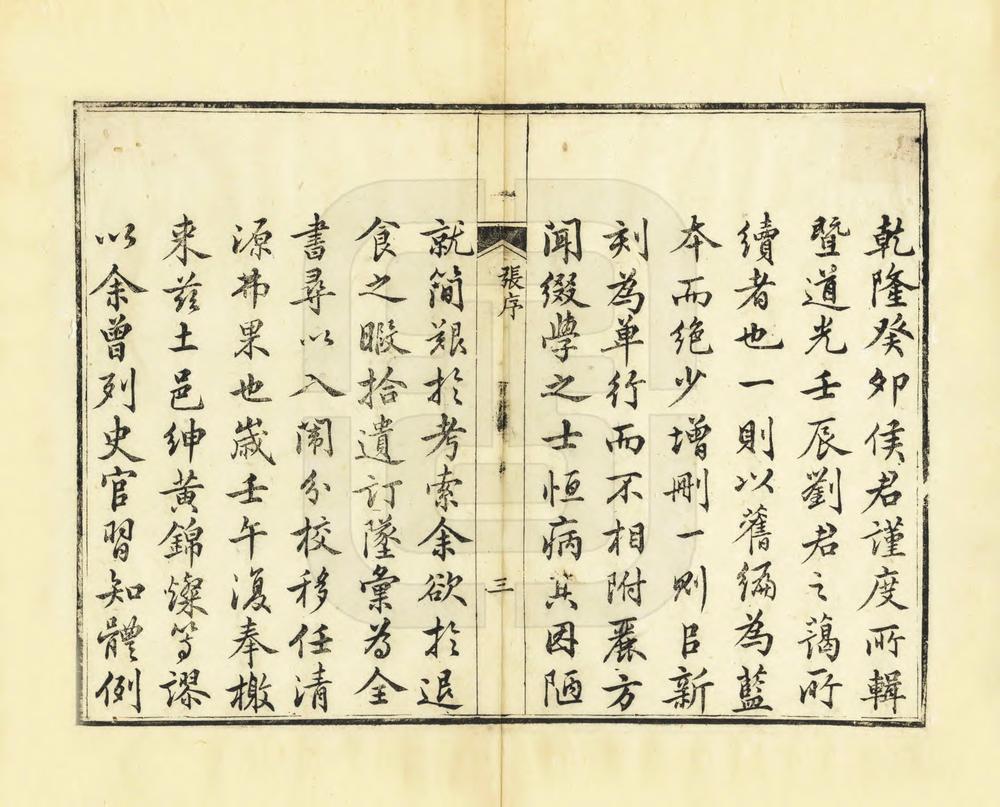 乾隆癸卯侯君謹度所輯
暨道光壬辰劉君之藹所
續者也一則以舊編為藍
本而絶少增刪一則㠯新
刻為单行而不相附麗方
闻綴學之士恒病其因陋
張序
三
就簡艱於考索余欲於退
食之暇拾遺訂墜彙為全
書尋以入闈分校移任清
源弗果也歲壬午復奉檄
来兹土邑紳黃錦燦等謬
以余曾列史官習知體例